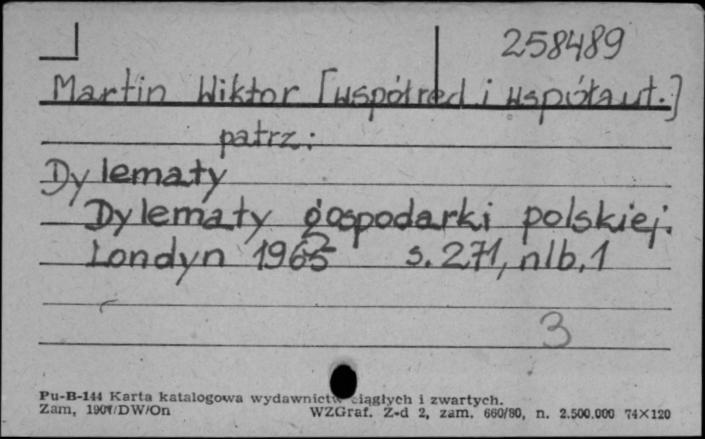 258489
Martin Wiktor [współred i współaut.]
patrz:
Dylematy
Dylematy gospodarki polskiej.
Londyn 1965 s. 271, nlb. 1
3
Pu-B-144 Karta katalogowa wydawnictw ciągłych i zwartych.
Zam, 1907/DW/On WZGraf. Z-d 2, zam. 660/80, n. 2.500.000 74×120